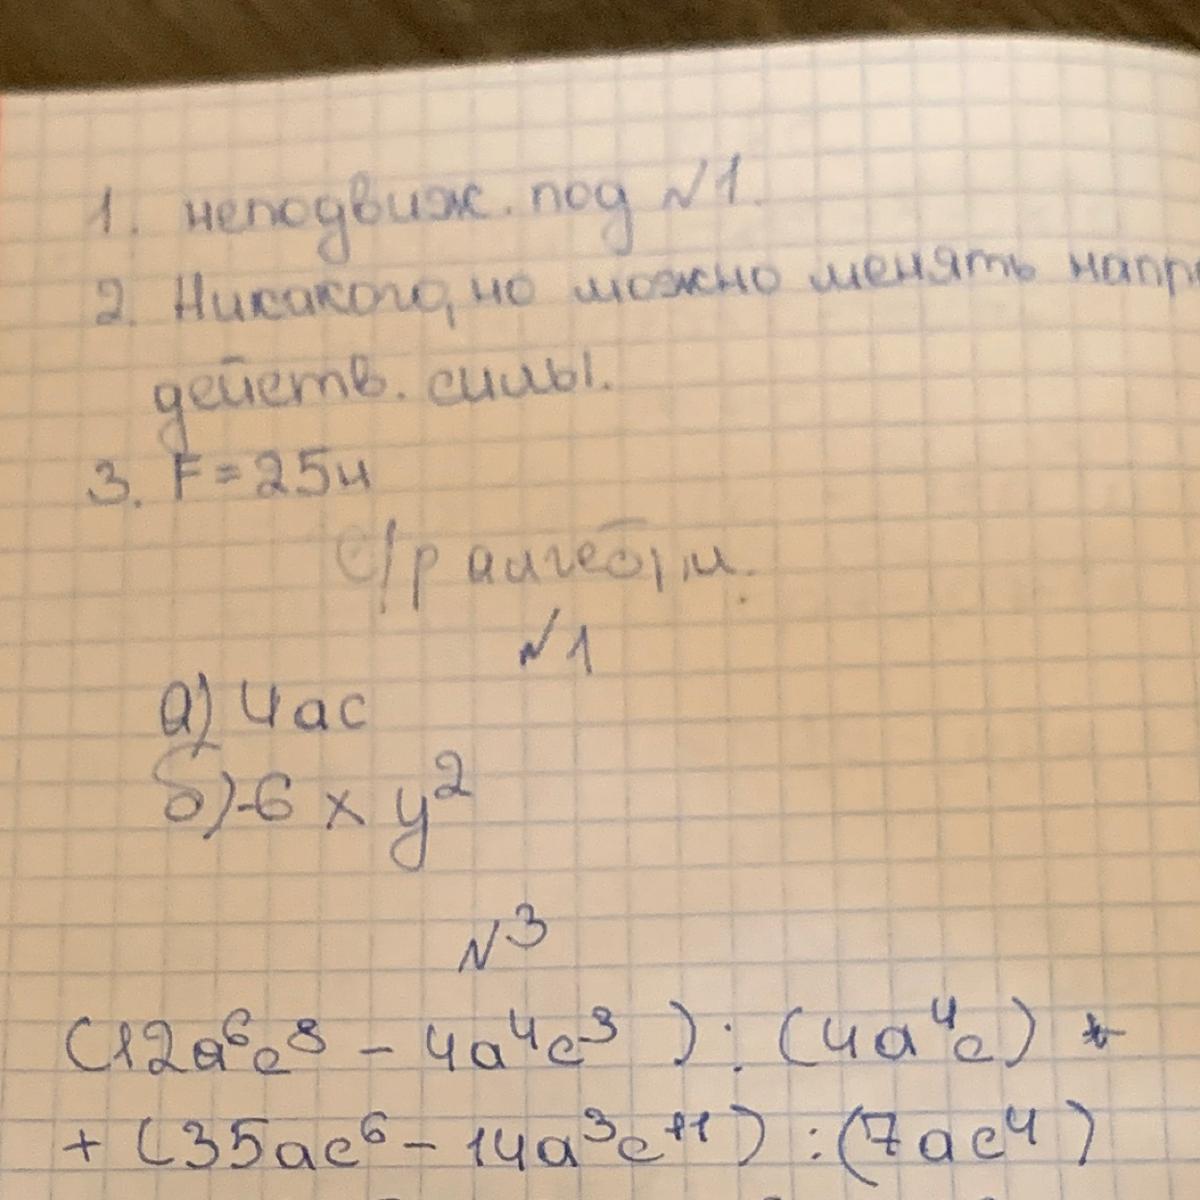 1. неподвиж. под №1.
2. Никакого, но можно менять напр
действ. силы.
3. F = 25н
С/р алгебр.
№1
а) 4ac
б) -6xy²
№3
(12a⁶c⁸ - 4a⁴c³) : (4a⁴c) +
+ (35ac⁶ - 14a³c¹¹) : (7ac⁴)